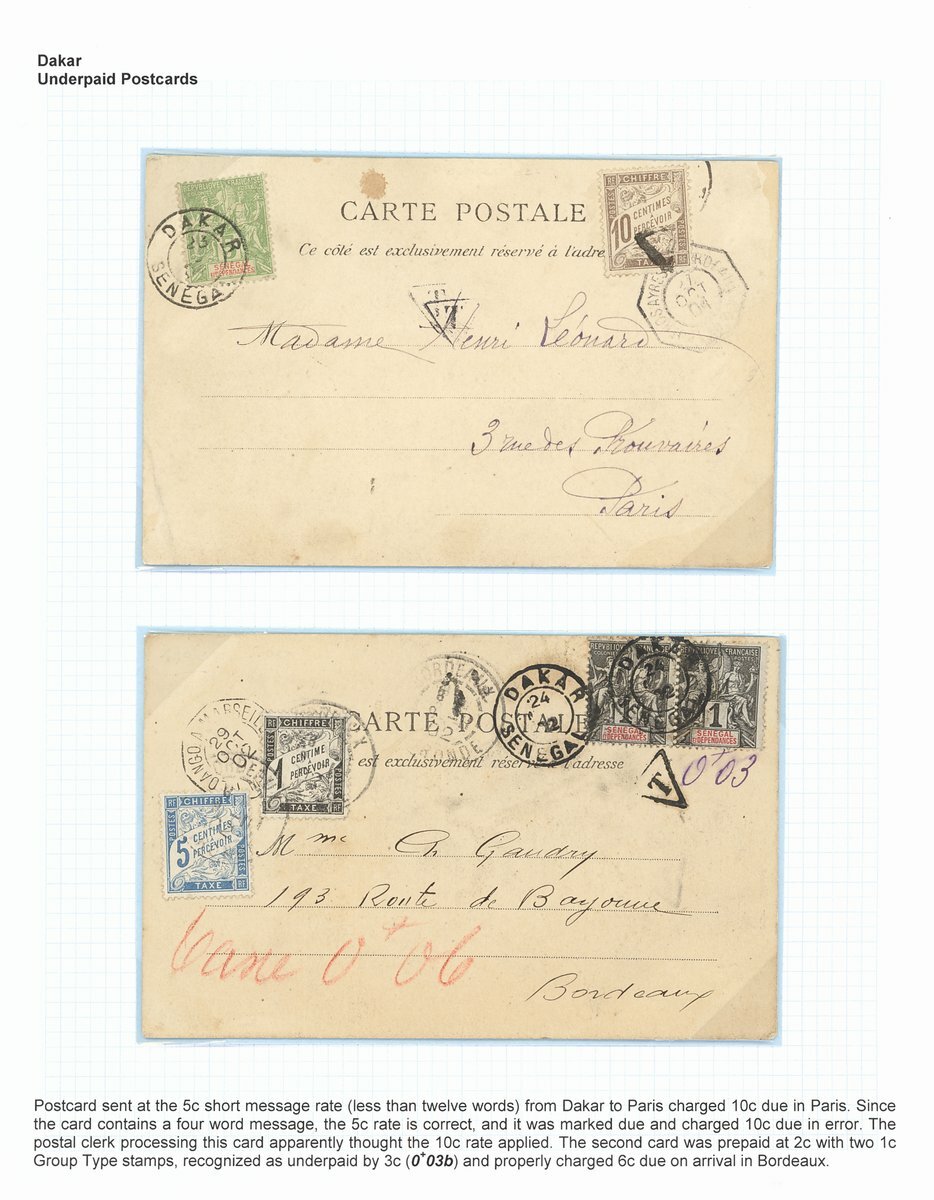 Dakar
Underpaid Postcards
REPUBLIQUE FRANÇAISE
SENEGAL
ET DEPENDANCES
DAKAR
23
SENEGAL
CARTE POSTALE
Ce côté est exclusivement réservé à l'adre
RF CHIFFRE RF
POSTES
10 CENTIMES
À PERCEVOIR
TAXE
T
OCT
Madame Henri Léonard
3 rue des Prouvaires
Paris
CARTE POSTALE
est exclusivement réservé à l'adresse
MARSEILLE
29
OCT
02
BORDEAUX
GIRONDE
DAKAR
24
02
SENEGAL
DAKAR
SENEGAL
REPUBLIQUE FRANÇAISE
COLONIES POSTES
1 1
SENEGAL
ET DEPENDANCES
SENEGAL
ET DEPENDANCES
T
0+03
RF CHIFFRE RF
1 CENTIME
À PERCEVOIR
TAXE
RF CHIFFRE RF
POSTES
5 CENTIMES
À PERCEVOIR
TAXE
Mme Ch Gaudry
193 Route de Bayonne
0+06
Bordeaux
Postcard sent at the 5c short message rate (less than twelve words) from Dakar to Paris charged 10c due in Paris. Since
the card contains a four word message, the 5c rate is correct, and it was marked due and charged 10c due in error. The
postal clerk processing this card apparently thought the 10c rate applied. The second card was prepaid at 2c with two 1c
Group Type stamps, recognized as underpaid by 3c (0+03b) and properly charged 6c due on arrival in Bordeaux.